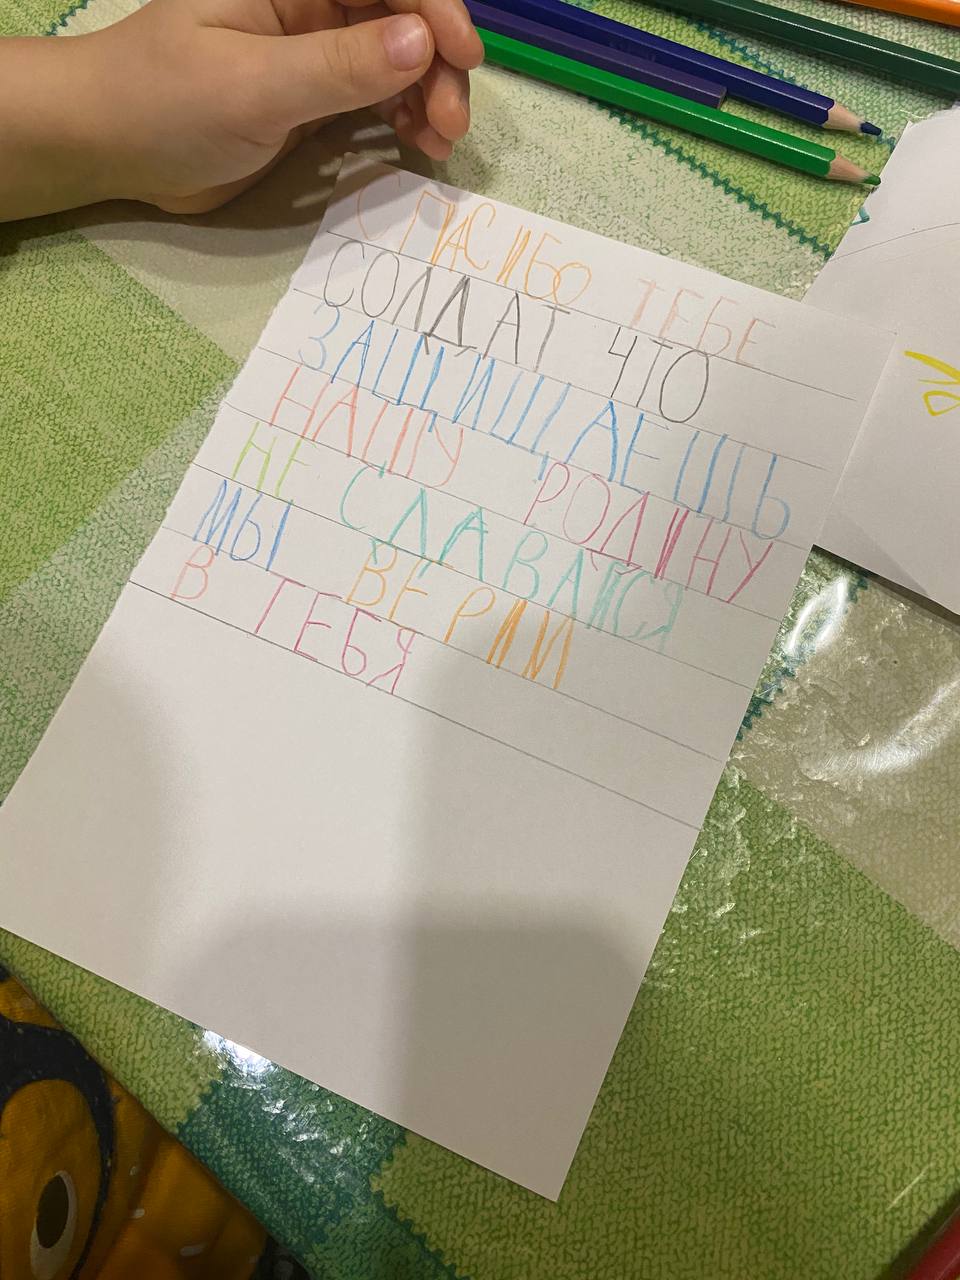 СПАСИБО ТЕБЕ
СОЛДАТ ЧТО
ЗАЩИЩАЕШЬ
НАШУ РОДИНУ
НЕ СЛАВАЙСЯ
МЫ ВЕРИМ
В ТЕБЯ